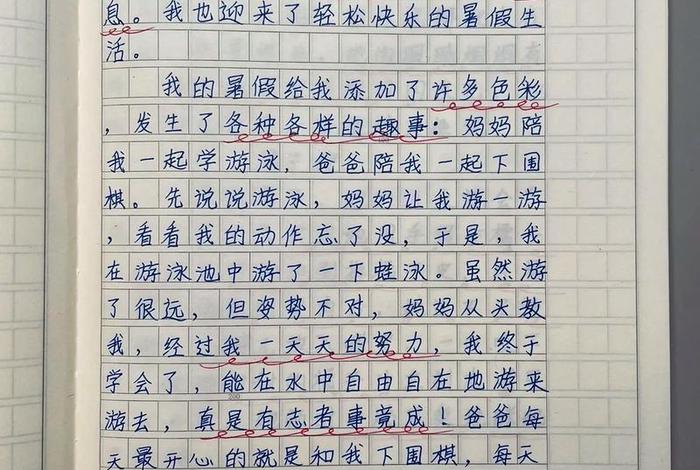 息。我也迎来了轻松快乐的暑假生
活。
我的暑假给我添加了许多色彩
，发生了各种各样的趣事：妈妈陪
我一起学游泳，爸爸陪我一起下围
棋。先说说游泳，妈妈让我游一游
，看看我的动作忘了没，于是，我
在游泳池中游了一下蛙泳。虽然游
了很远，但姿势不对，妈妈从头教
我，经过我一天天的努力，我终于
学会了，能在水中自由自在地游来
200
游去，真是有志者事竟成！爸爸每
天最开心的就是和我下围棋，每天